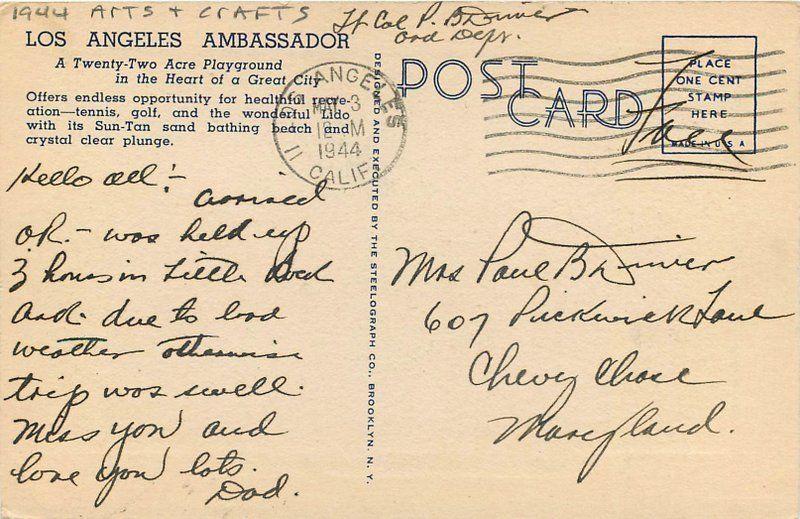 1944 ARTS & CRAFTS
Lt Col P. B Driver
Ord Dept.
LOS ANGELES AMBASSADOR
A Twenty-Two Acre Playground
in the Heart of a Great City
Offers endless opportunity for healthful recre-
ation—tennis, golf, and the wonderful Lido
with its Sun-Tan sand bathing beach and
crystal clear plunge.
Hello all!-
arrived
O.K. - was held up
3 hours in Little Rock
Ark. due to bad
weather otherwise
trip was swell.
Miss you and
love you lots.
Dad.
DESIGNED AND EXECUTED BY THE STEELOGRAPH CO., BROOKLYN, N. Y.
LOS ANGELES
MAY 3
12 M
1944
11 CALIF.
POST
CARD
PLACE
ONE CENT
STAMP
HERE
MADE IN U S A
Free
Mrs Paul B Driver
607 Pickwick Lane
Chevy Chase
Maryland.